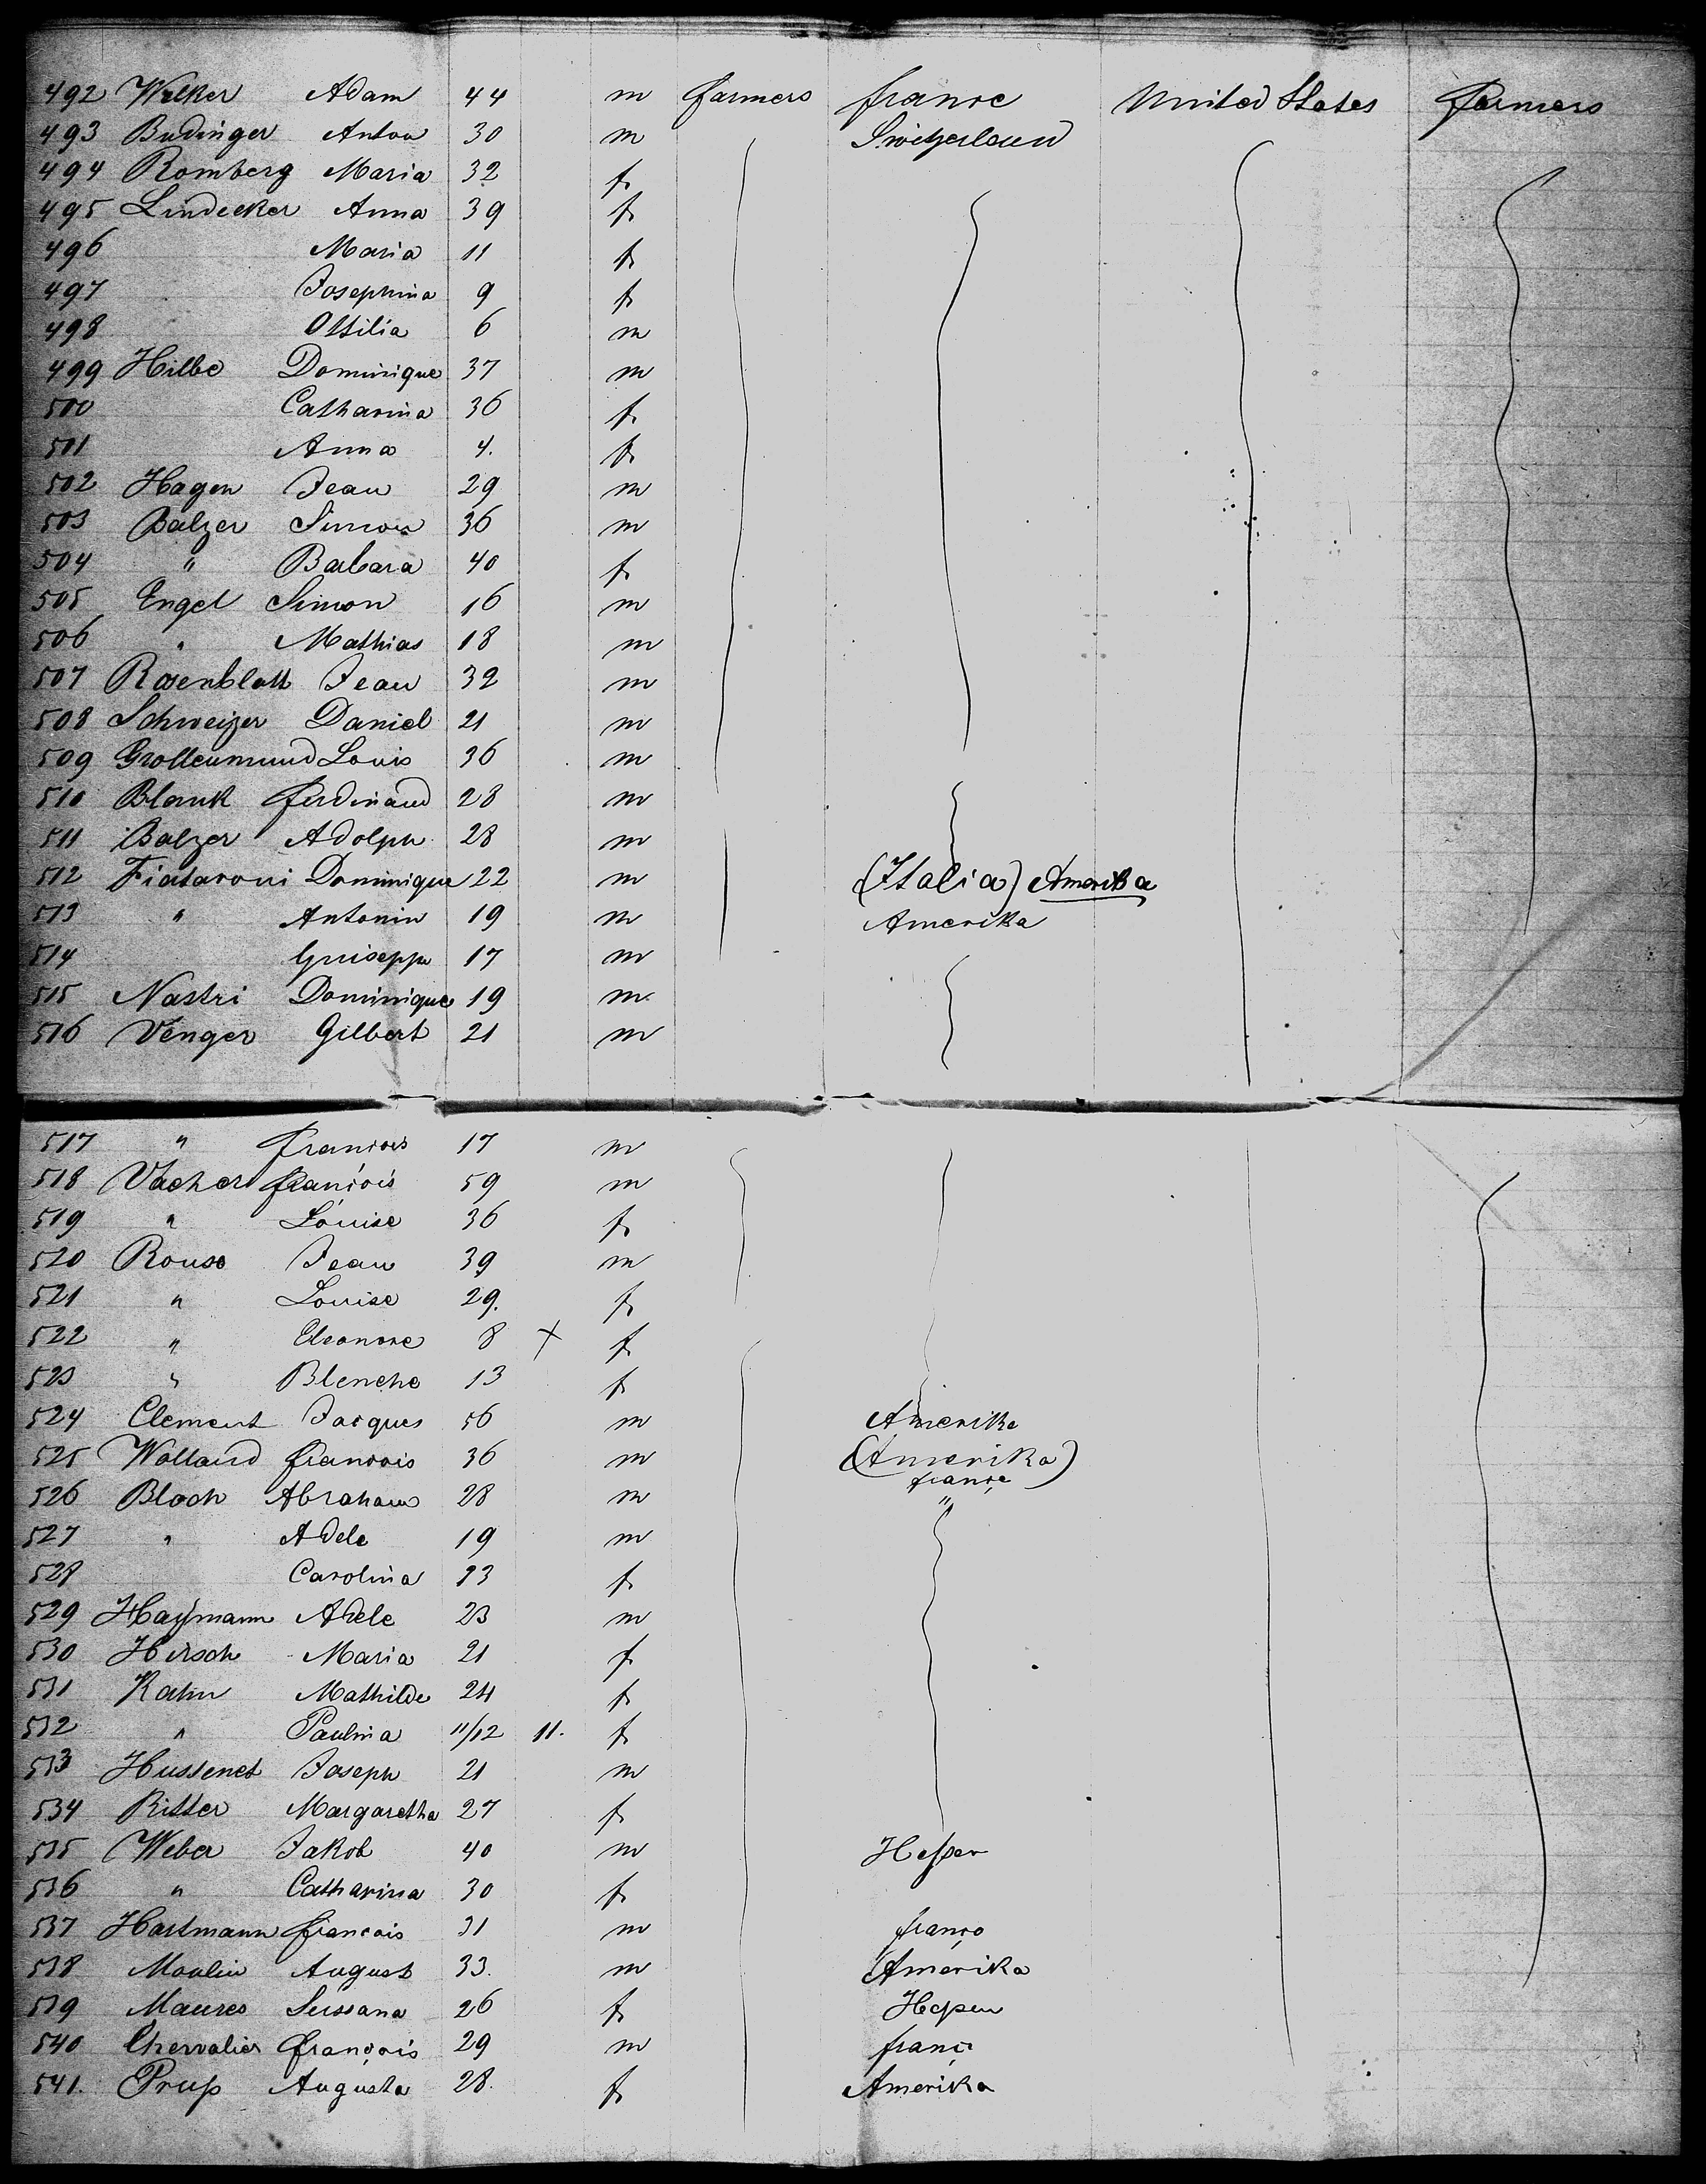 492 Walker Adam 44 m farmers france United States farmers
493 Budinger Anton 30 m Switzerland
494 Romberg Maria 32 f
495 Lindecker Anna 39 f
496 Maria 11 f
497 Josephina 9 f
498 Ottilia 6 m
499 Hilbe Dominique 37 m
500 Catharina 36 f
501 Anna 4. f
502 Hagen Jean 29 m
503 Balzer Simon 36 m
504 " Barbara 40 f
505 Engel Simon 16 m
506 " Mathias 18 m
507 Rosenblatt Jean 32 m
508 Schweizer Daniel 21 m
509 Grollemund Louis 36 m
510 Blank Ferdinand 28 m
511 Balzer Adolph 28 m
512 Fiataroni Dominique 22 m (Italia) Amerika
513 " Antonin 19 m Amerika
514 Guiseppe 17 m
515 Nastri Dominique 19 m
516 Venger Gilbert 21 m
517 " francois 17 m
518 Vacher francois 59 m
519 " Louise 36 f
520 Rouso Jean 39 m
521 " Louise 29. f
522 " Eleonore 8 + f
523 " Blenche 13 f
524 Clement Jacques 56 m Amerika
525 Wolland francois 36 m (Amerika) france
526 Bloch Abraham 28 m "
527 " Adele 19 m
528 Carolina 23 f
529 Haymann Adele 23 m
530 Hirsch Maria 21 f
531 Kahn Mathilde 24 f
532 " Paulina 11/12 11. f
533 Hussenet Joseph 21 m
534 Ritter Margaretha 27 f
535 Weber Jakob 40 m Hessen
536 " Catharina 30 f
537 Hartmann francois 31 m france
538 Moulin August 33. m Amerika
539 Maures Sussana 26 f Hessen
540 Chervalier françois 29 m france
541. Pruss Augusta 28. f Amerika